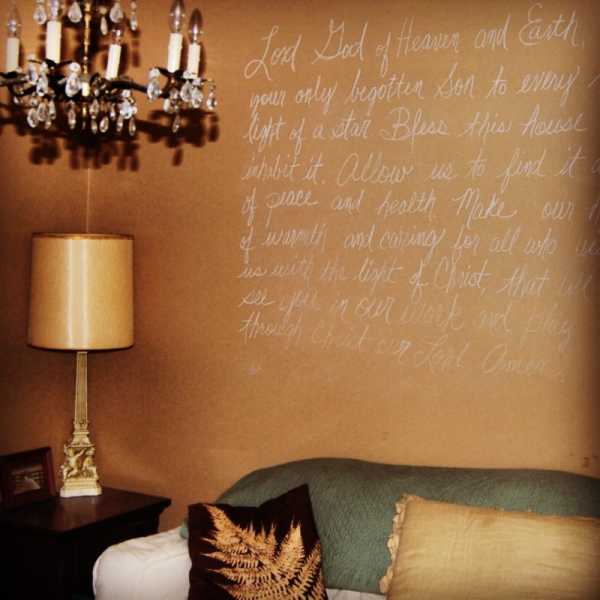 Lord God of Heaven and Earth,
your only begotten Son to every
light of a star Bless this house
inhabit it. Allow us to find it a
of peace and health Make our
of warmth and caring for all who
us with the light of Christ, that we
see you in our work and play
through Christ our Lord Amen.